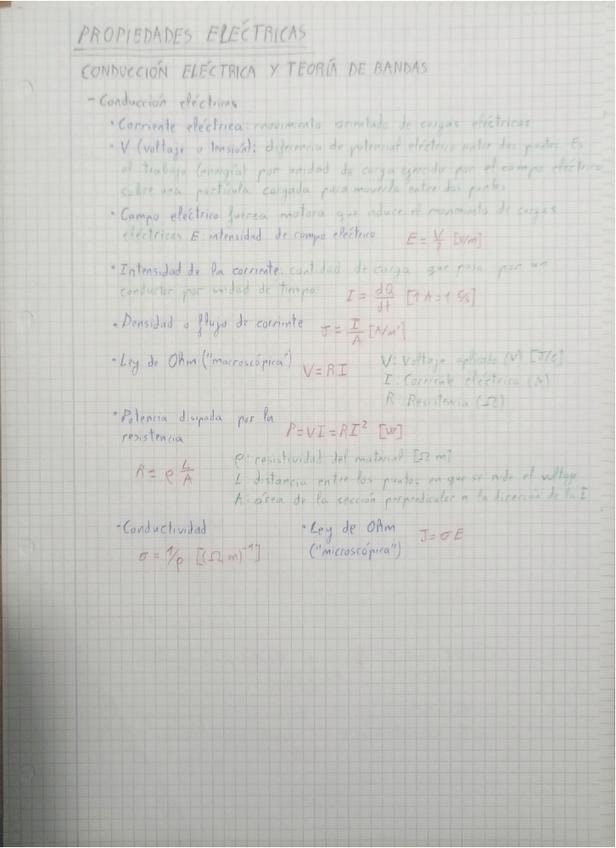 PROPIEDADES ELÉCTRICAS
CONDUCCIÓN ELÉCTRICA Y TEORÍA DE BANDAS
- Conducción eléctrica
• Corriente eléctrica: movimiento orientado de cargas eléctricas
• V (voltaje o tensión): diferencia de potencial eléctrico entre dos puntos. Es
el trabajo (energía) por unidad de carga ejercido por el campo eléctrico
sobre una partícula cargada para moverla entre dos puntos.
• Campo eléctrico: fuerza motora que induce el movimiento de cargas
eléctricas E: intensidad de campo eléctrico E = V/l [V/m]
• Intensidad de la corriente: cantidad de carga que pasa por un
conductor por unidad de tiempo. I = dQ/dt [1 A = 1 C/s]
• Densidad o flujo de corriente J = I/A [A/m²]
• Ley de Ohm ("macroscópica") V = RI V: Voltaje aplicado (V) [J/C]
I: Corriente eléctrica (A)
R: Resistencia (Ω)
• Potencia disipada por la
resistencia P = VI = RI² [W]
R = ρ L/A ρ: resistividad del material [Ω m]
L: distancia entre los puntos en que se mide el voltaje
A: área de la sección perpendicular a la dirección de la I
• Conductividad • Ley de Ohm
("microscópica") J = σE
σ = 1/ρ [(Ω m)⁻¹]